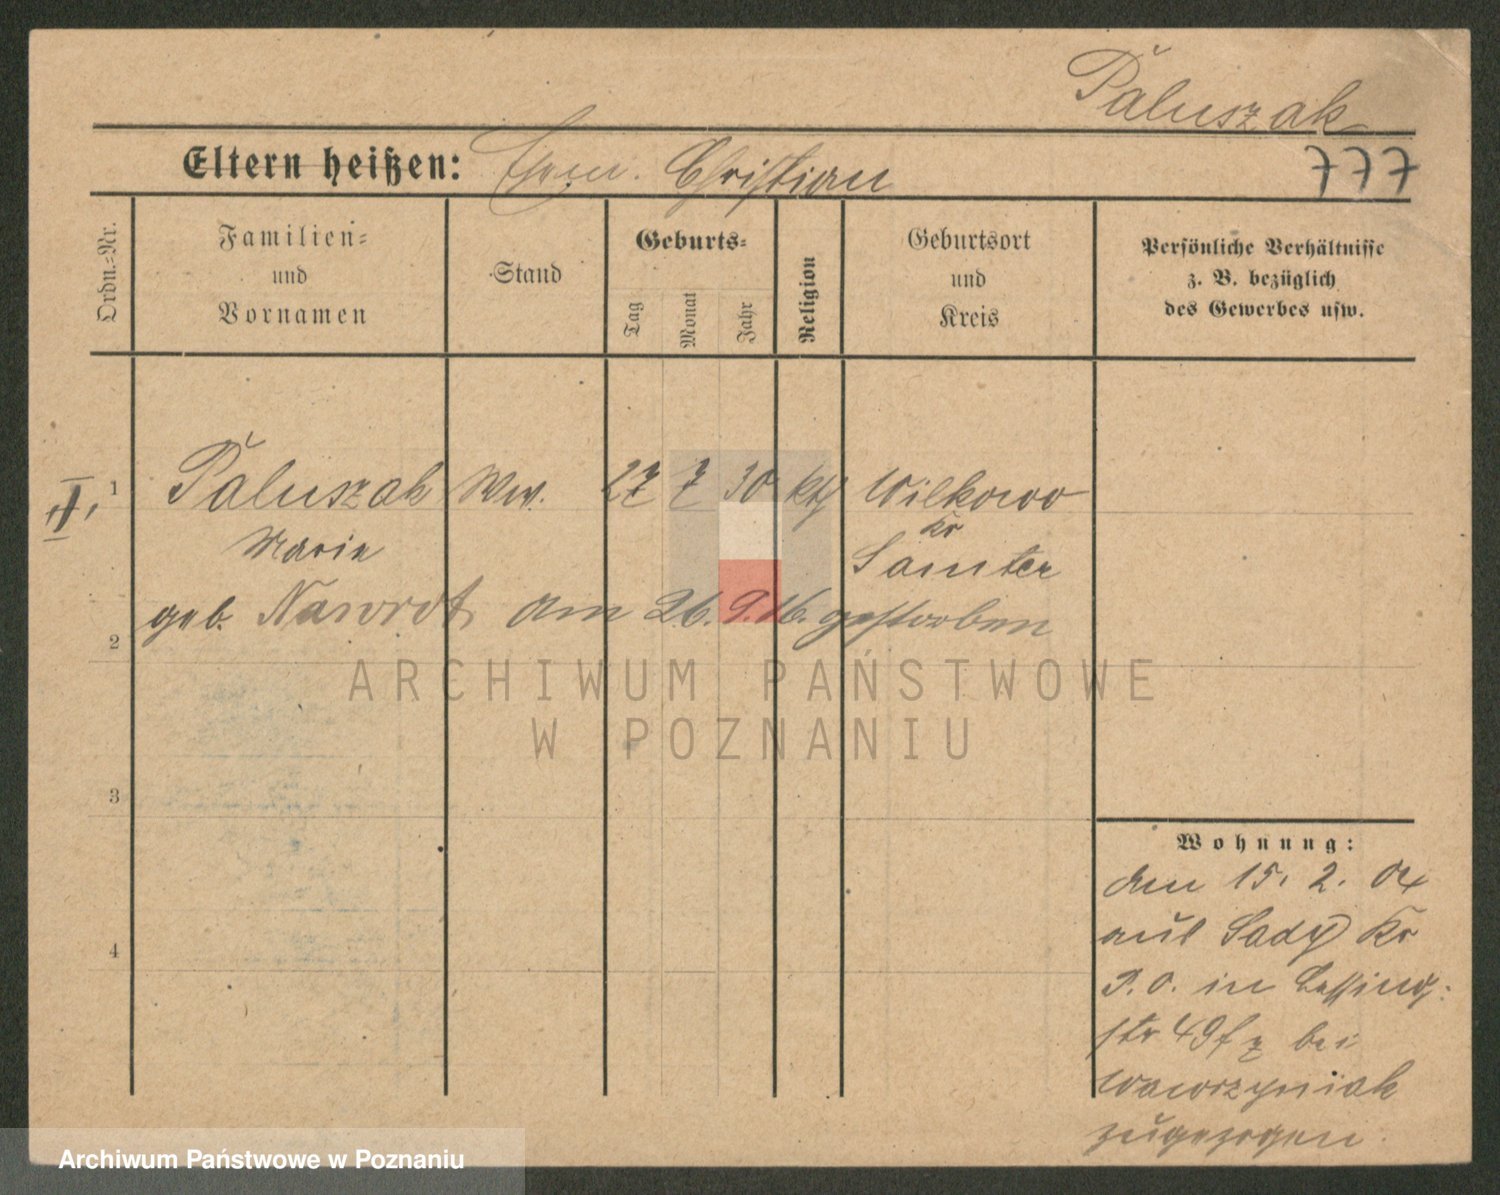 Paluszak
Eltern heißen: Ehem. Christian
777
Ordn.-Nr.
Familien-
und
Vornamen
Stand
Geburts-
Tag
Monat
Jahr
Religion
Geburtsort
und
Kreis
Persönliche Verhältnisse
z. B. bezüglich
des Gewerbes usw.
II.
1 Paluszak Ww. 27 7 30 kth Wilkowo
Kr
Marie Samter
geb. Nawrot am 26. 9. 16. gestorben
2
3
4
Wohnung:
am 15. 2. 04
aus Sady Kr
P. O. in Lessing-
str 49f z bei
Wawrzyniak
zugezogen
ARCHIWUM PAŃSTWOWE
W POZNANIU
Archiwum Państwowe w Poznaniu